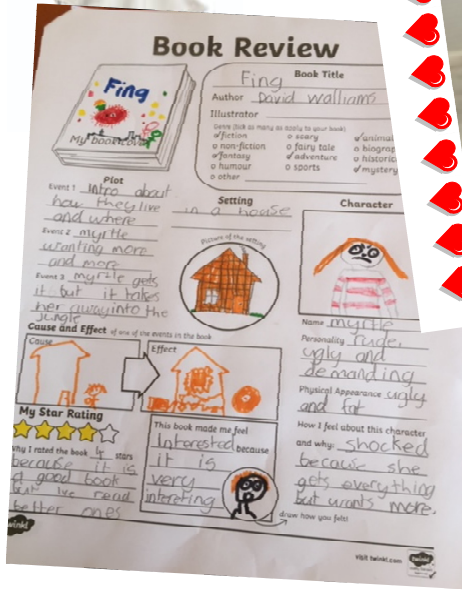 Book Review
Fing
My book cover
Book Title
Fing
Author David walliams
Illustrator
Genre (tick as many as apply to your book)
fiction
non-fiction
fantasy
humour
other
scary
fairy tale
adventure
sports
mystery
Plot
Event 1 Intro about
how they live
and where
Event 2 myrtle
wanting more
and more
Event 3 myrtle gets
it but it takes
her away into the
jungle
Setting
in a hoose
Picture of the setting
Character
Name myrtle
Personality rude,
ugly and
demanding
Physical Appearance ugly
and fat
How I feel about this character
and why: shocked
because she
gets everything
but wants more.
Cause and Effect of one of the events in the book
Cause
Effect
My Star Rating
Why I rated the book 4 stars
because it is
a good book
but ive read
better ones
This book made me feel
Interested because
it is
very
intereting
draw how you felt!
visit twinkl.com
twinkl